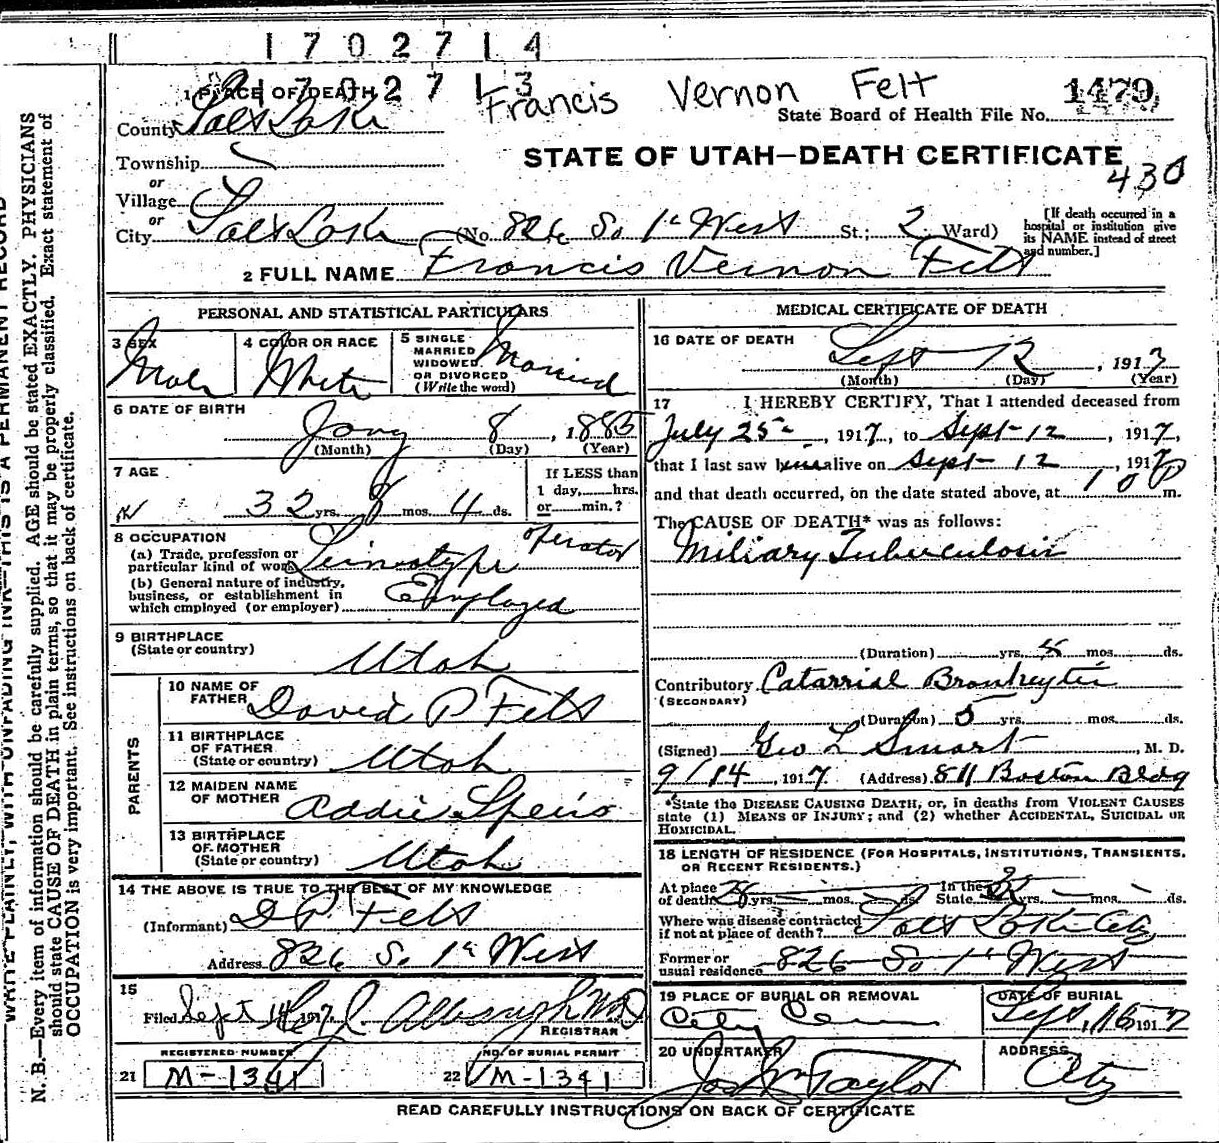 1702714
1702713
Francis Vernon Felt
1 PLACE OF DEATH
1479
State Board of Health File No.
County Salt Lake
STATE OF UTAH—DEATH CERTIFICATE
Township
430
or
Village
or
City Salt Lake (No. 826 So 1st West St.; 2 Ward)
[If death occurred in a hospital or institution give its NAME instead of street and number.]
2 FULL NAME Francis Vernon Felt
PERSONAL AND STATISTICAL PARTICULARS
3 SEX Male
4 COLOR OR RACE White
5 SINGLE MARRIED WIDOWED OR DIVORCED (Write the word) Married
6 DATE OF BIRTH
Jany 8, 1885
(Month) (Day) (Year)
7 AGE
32 yrs. 8 mos. 4 ds.
If LESS than 1 day, hrs. or min.?
8 OCCUPATION
(a) Trade, profession or particular kind of work Linotype operator
(b) General nature of industry, business, or establishment in which employed (or employer) Employed
9 BIRTHPLACE
(State or country) Utah
PARENTS
10 NAME OF FATHER David P Felt
11 BIRTHPLACE OF FATHER (State or country) Utah
12 MAIDEN NAME OF MOTHER Addie Speirs
13 BIRTHPLACE OF MOTHER (State or country) Utah
14 THE ABOVE IS TRUE TO THE BEST OF MY KNOWLEDGE
(Informant) D P Felt
Address 826 So 1st West
15
Filed Sept 14 1917
REGISTRAR
REGISTERED NUMBER
21 M-1341
NO. OF BURIAL PERMIT
22 M-1341
MEDICAL CERTIFICATE OF DEATH
16 DATE OF DEATH
Sept 12, 1917
(Month) (Day) (Year)
17 I HEREBY CERTIFY, That I attended deceased from
July 25, 1917, to Sept 12, 1917,
that I last saw him alive on Sept 12, 1917
and that death occurred, on the date stated above, at 10 P m.
The CAUSE OF DEATH* was as follows:
Miliary Tuberculosis
(Duration) yrs. mos. ds.
Contributory Catarrial Bronkeytis
(SECONDARY)
(Duration) 5 yrs. mos. ds.
(Signed) Geo L Smart, M. D.
9/14, 1917 (Address) 811 Boston Bldg
*State the DISEASE CAUSING DEATH, or, in deaths from VIOLENT CAUSES
state (1) MEANS OF INJURY; and (2) whether ACCIDENTAL, SUICIDAL OR
HOMICIDAL.
18 LENGTH OF RESIDENCE (FOR HOSPITALS, INSTITUTIONS, TRANSIENTS,
OR RECENT RESIDENTS.)
At place of death yrs. mos. ds. In the State yrs. mos. ds.
Where was disease contracted if not at place of death? Salt Lake City
Former or usual residence 826 So 1st West
19 PLACE OF BURIAL OR REMOVAL
City Cem
DATE OF BURIAL
Sept, 16 1917
20 UNDERTAKER
Jos Wm Taylor
ADDRESS
City
READ CAREFULLY INSTRUCTIONS ON BACK OF CERTIFICATE
WRITE PLAINLY, WITH UNFADING INK—THIS IS A PERMANENT RECORD
N. B.—Every item of information should be carefully supplied. AGE should be stated EXACTLY. PHYSICIANS
should state CAUSE OF DEATH in plain terms, so that it may be properly classified. Exact statement of
OCCUPATION is very important. See instructions on back of certificate.